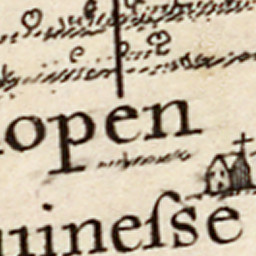 open
uineſse